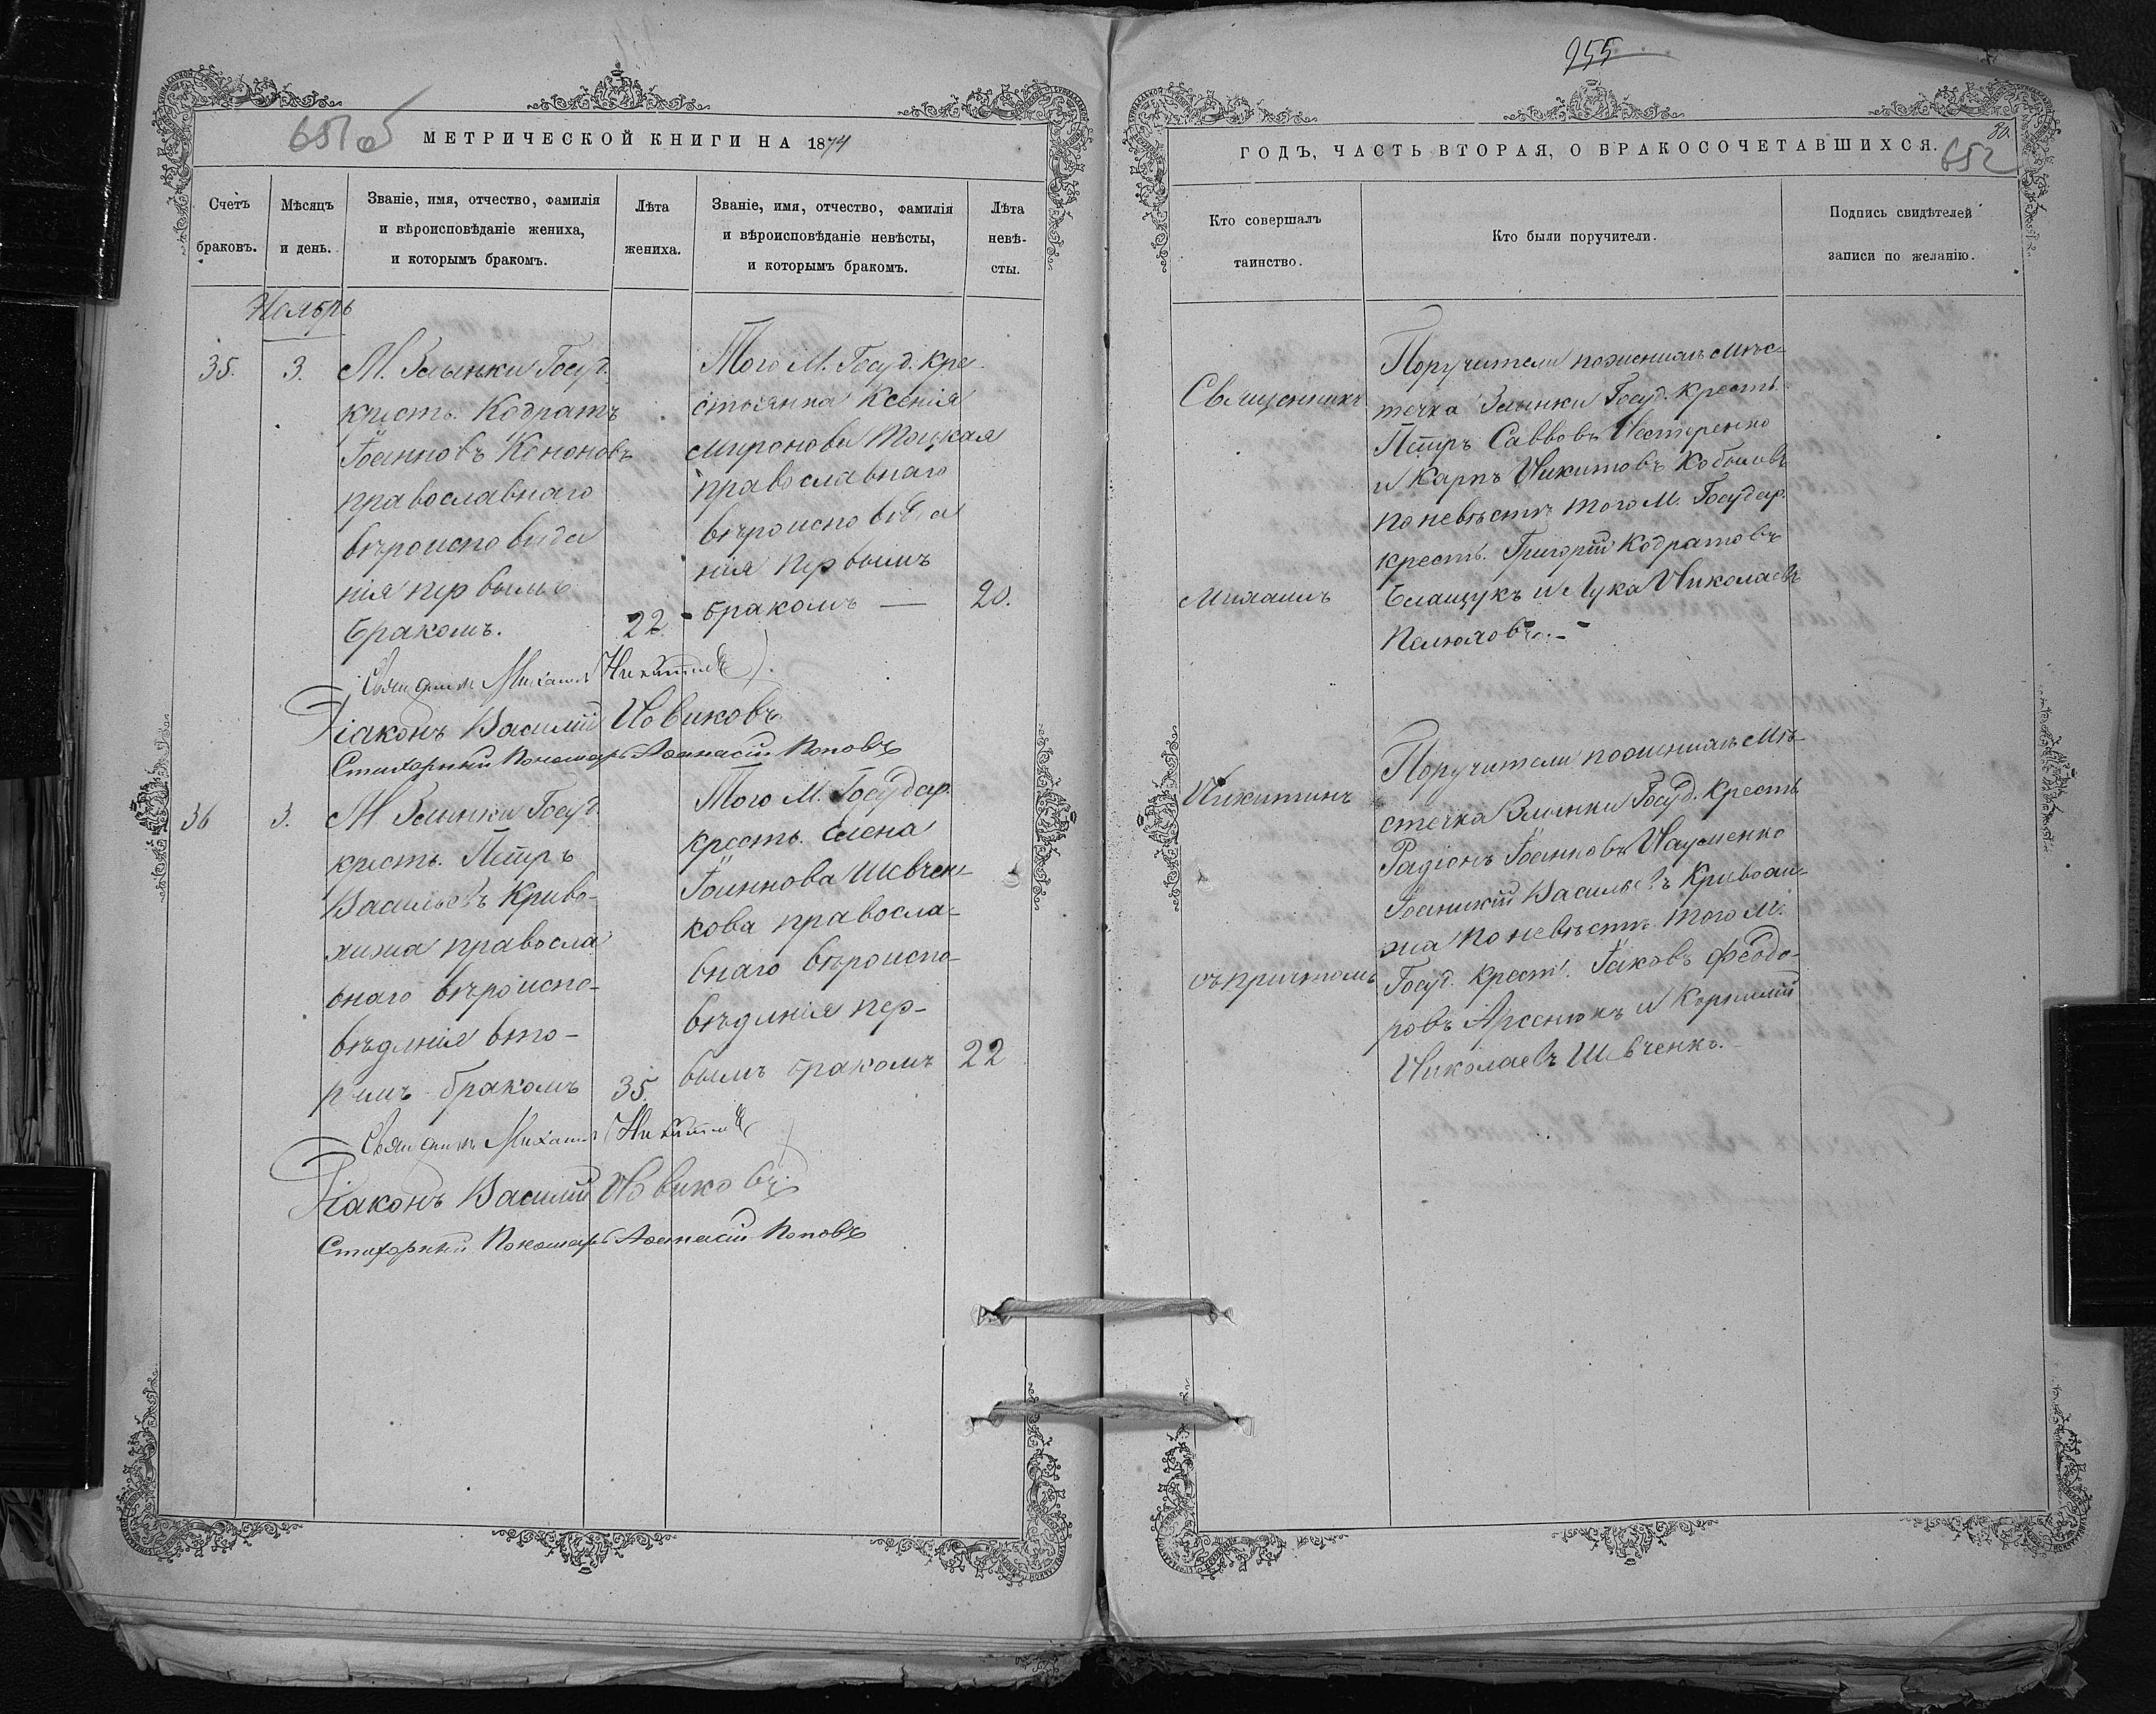 651об
МЕТРИЧЕСКОЙ КНИГИ НА 1874
Счетъ браковъ.
Мѣсяцъ и день.
Званіе, имя, отчество, фамилія
и вѣроисповѣданіе жениха,
и которымъ бракомъ.
Лѣта жениха.
Званіе, имя, отчество, фамилія
и вѣроисповѣданіе невѣсты,
и которымъ бракомъ.
Лѣта невѣ-
сты.
Ноябрь
35.
3.
М. Злынки Госуд.
крестъ. Кодратъ
Іоанновъ Кононовъ
православнаго
вѣроисповѣда
нія первымъ
бракомъ.
22.
Того М. Госуд. кре
стьянка Ксенія
Миронова
православнаго
вѣроисповѣда
нія первымъ
бракомъ —
20.
Священник Михаилъ Никитинъ
Діаконъ Василій Новиковъ
Стихарный Пономарь Аѳанасій Поповъ
36
3.
М. Злынки Госуд.
крестъ. Петръ
Васильевъ Криво-
хижа правосла
внаго вѣроиспо-
вѣденія вто-
рымъ бракомъ
35.
Того М. Государ.
крестъ. Елена
Іоаннова Шевчен-
кова правосла-
внаго вѣроиспо-
вѣденія пер-
вымъ бракомъ
22
Священник Михаилъ Никитинъ
Діаконъ Василій Новиковъ
Стихарный Пономарь Аѳанасій Поповъ
955
80.
ГОДЪ, ЧАСТЬ ВТОРАЯ, О БРАКОСОЧЕТАВШИХСЯ.
652
Кто совершалъ
таинство.
Кто были поручители.
Подпись свидѣтелей
записи по желанію.
Священникъ
Михаилъ
Никитинъ
съ причтомъ
Поручители по женихѣ мѣс-
течка Злынки Госуд. крестъ.
Петръ Саввовъ Нестеренко
и Карпъ Никитовъ Кобылевъ
по невѣстѣ того М. Государ.
крестъ. Григорій Кодратовъ
и Лука Николаевъ
Поручители по женихѣ Мѣ-
стечка Злынки Госуд. крестъ
Радіонъ Іоанновъ Науменко
Іоаникій Васильевъ Кривохи-
жа по невѣстѣ того М.
Госуд. крест. Іаковъ Ѳеодо-
ровъ Арсенюкъ и Корнилій
Николаевъ Шевченкъ.